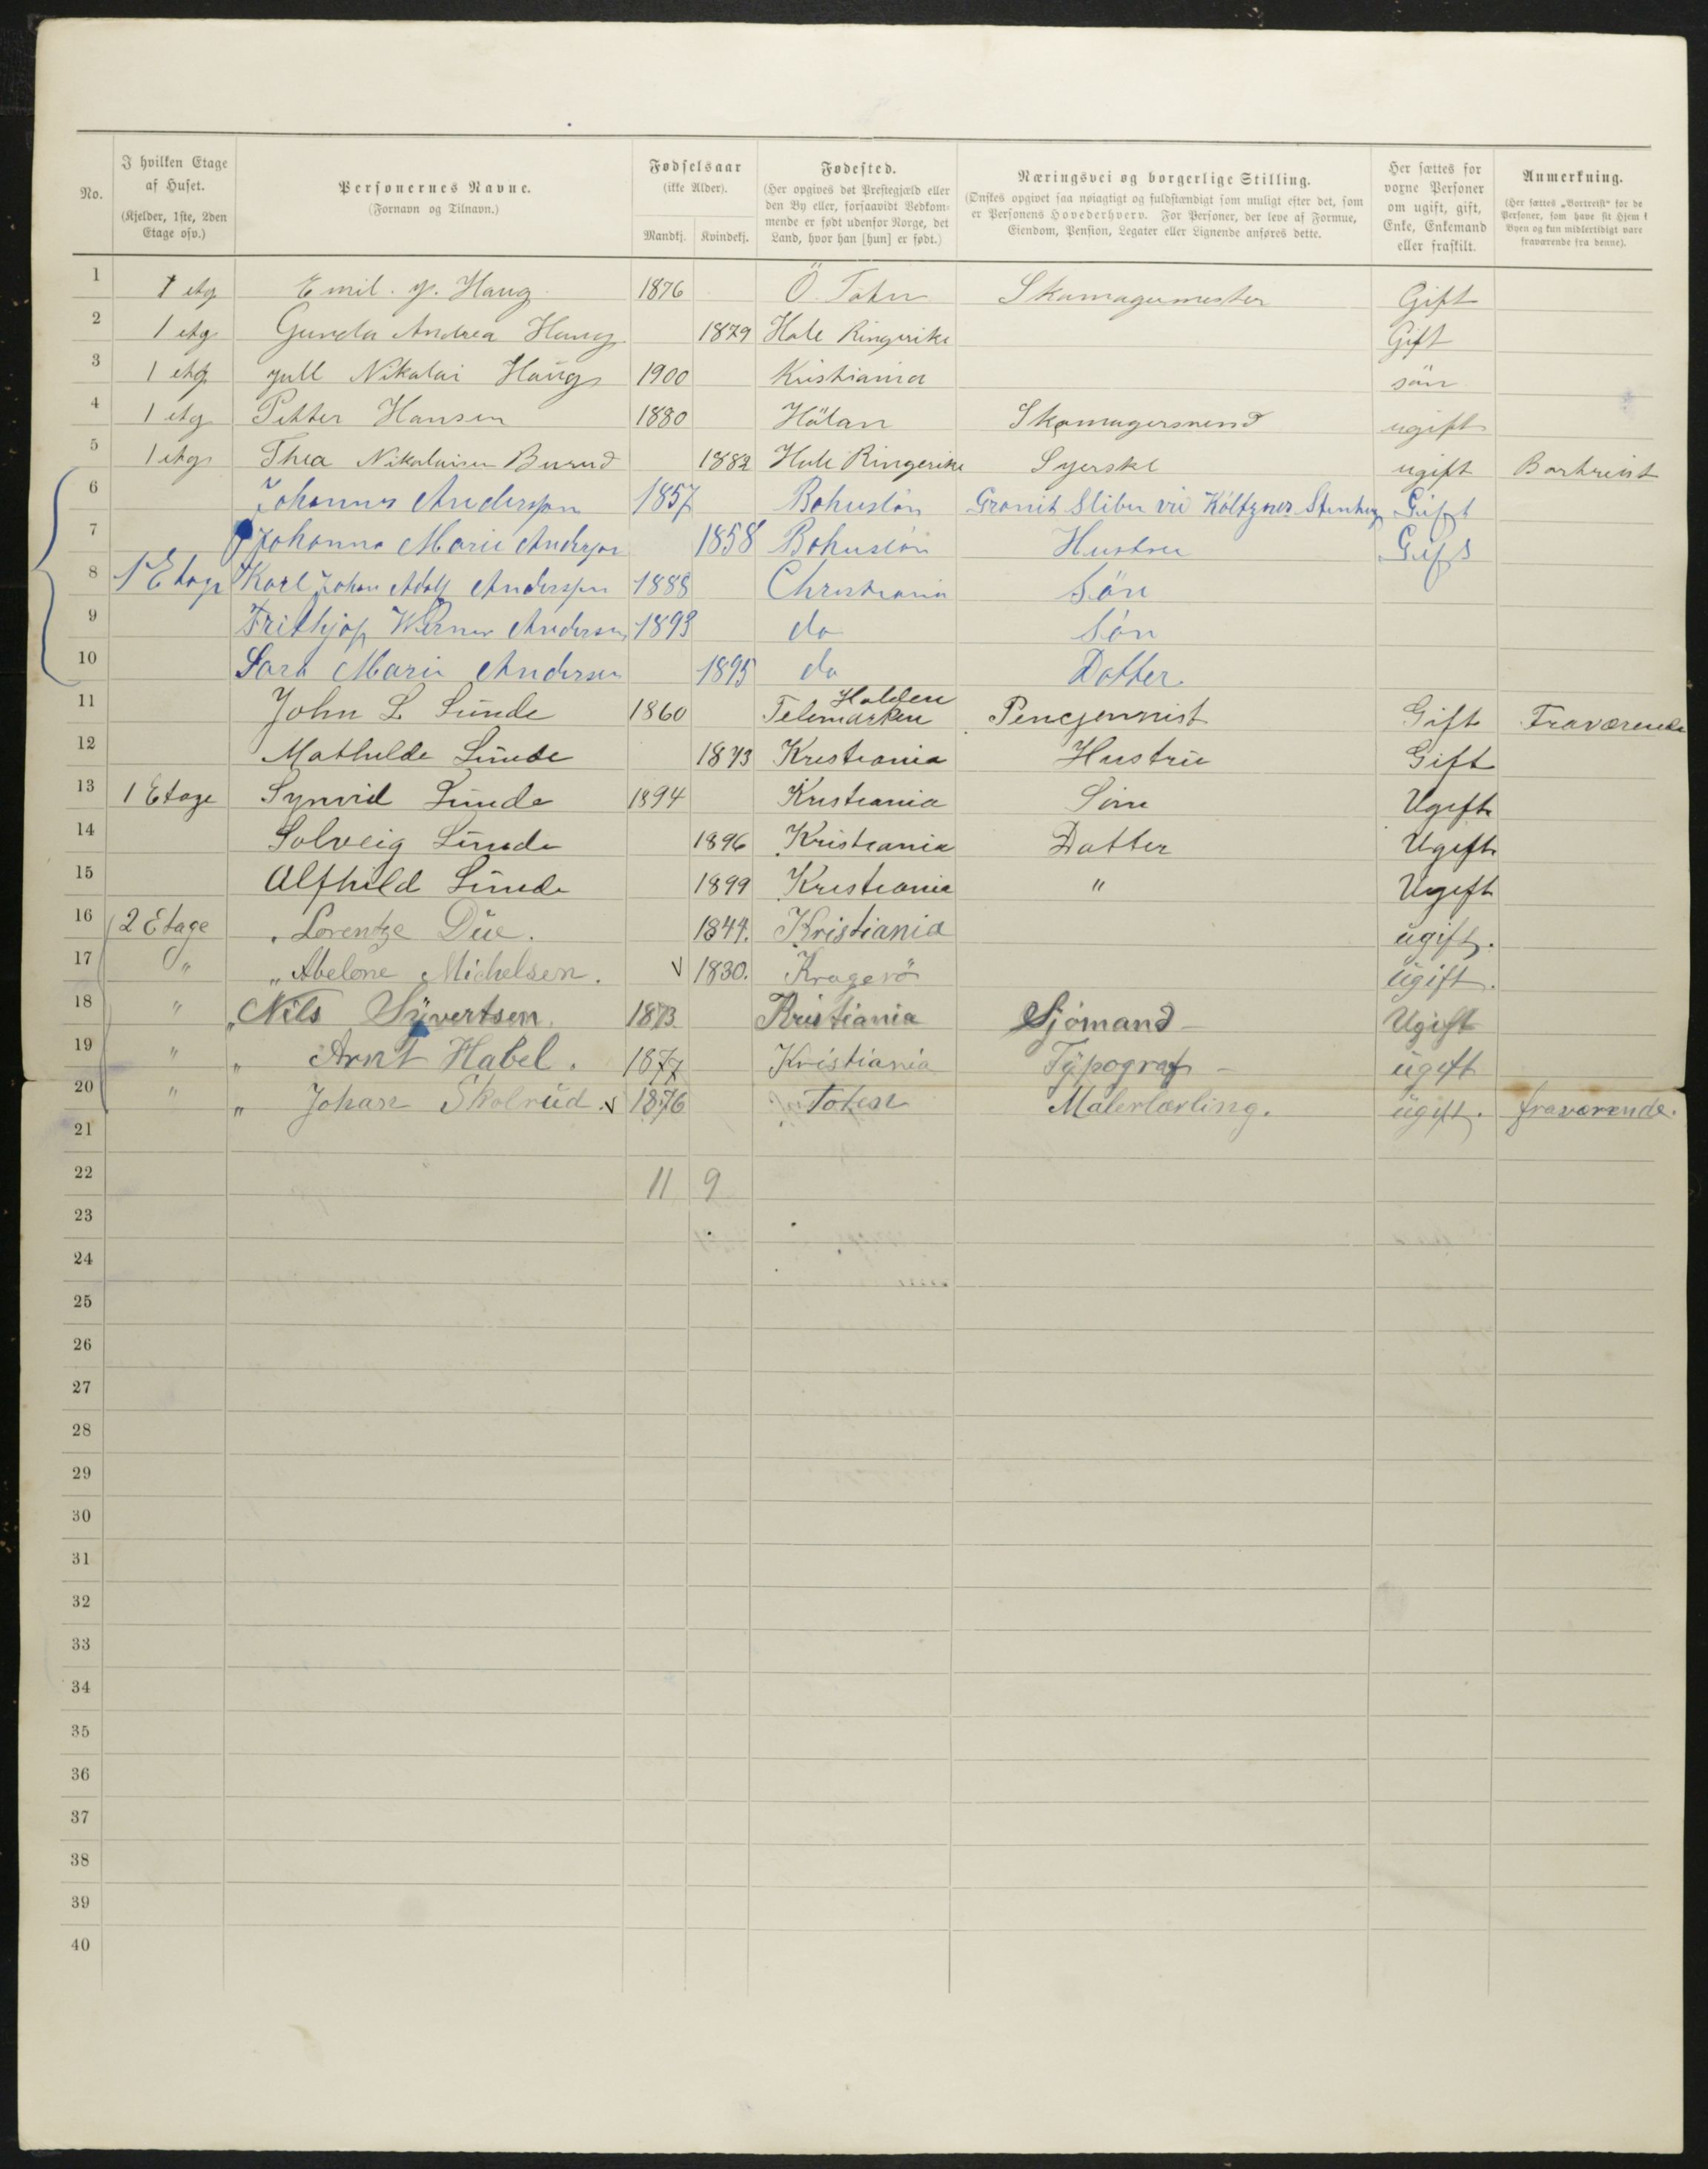 No.
I hvilken Etage af Huset. (Kjelder, 1ste, 2den Etage osv.)
Personernes Navne. (Fornavn og Tilnavn.)
Fødselsaar (ikke Alder). Mandkj. Kvindekj.
Fødested. (Her opgives det Prestegjæld eller den By eller, forsaavidt Vedkommende er født udenfor Norge, det Land, hvor han [hun] er født.)
Næringsvei og borgerlige Stilling. (Ønskes opgivet saa nøiagtigt og fuldstændigt som muligt efter det, som er Personens Hovederhverv. For Personer, der leve af Formue, Eiendom, Pension, Legater eller Lignende anføres dette.
Her sættes for voxne Personer om ugift, gift, Enke, Enkemand eller fraskilt.
Anmerkning. (Her sættes „Bortreist“ for de Personer, som have sit Hjem i Byen og kun midlertidigt vare fraværende fra denne).
1 1 etg Emil. Haug 1876 Ö. Totn Skomagermester Gift
2 1 etg Gunda Andrea Haug 1879 Hole Ringerike Gift
3 1 etg Nikolai Haug 1900 Kristiania sön
4 1 etg Petter Hansen 1880 Hölan Skomagersvend ugift
5 1 etg Thea Nikolaisen Burud 1882 Hole Ringerike Syerske ugift Bortreist
6 Johannes Andersson 1857 Bohuslön Granit Sliber Gift
7 Johanna Marie Andersson 1858 Bohuslön Hustru Gift
8 1 Etage Karl Johan Adolf Andersson 1888 Christiania Sön
9 Frithjof Werner Andersen 1893 do Sön
10 Sara Marie Andersen 1895 do Datter
11 John L Lunde 1860 Holden Telemarken Gift Fraværende
12 Mathilde Lunde 1873 Kristiania Hustru Gift
13 1 Etage Synvid Lunde 1894 Kristiania Sön Ugift
14 Solveig Lunde 1896 Kristiania Datter Ugift
15 Alfhild Lunde 1899 Kristiania " Ugift
16 2 Etage Lorentze Düe. 1844. Kristiania ugift.
17 " „ Abelone Michelsen. 1830. Kragerö ugift.
18 " „ Nils Syvertsen. 1873. Kristiania Sjømand - Ugift
19 " „ Arnt Habel. 1877 Kristiania Typograf - ugift
20 " „ Johan Skolrud. 1876 Toten Malerlærling. ugift. fraværende.
21
22 11 9
23
24
25
26
27
28
29
30
31
32
33
34
35
36
37
38
39
40